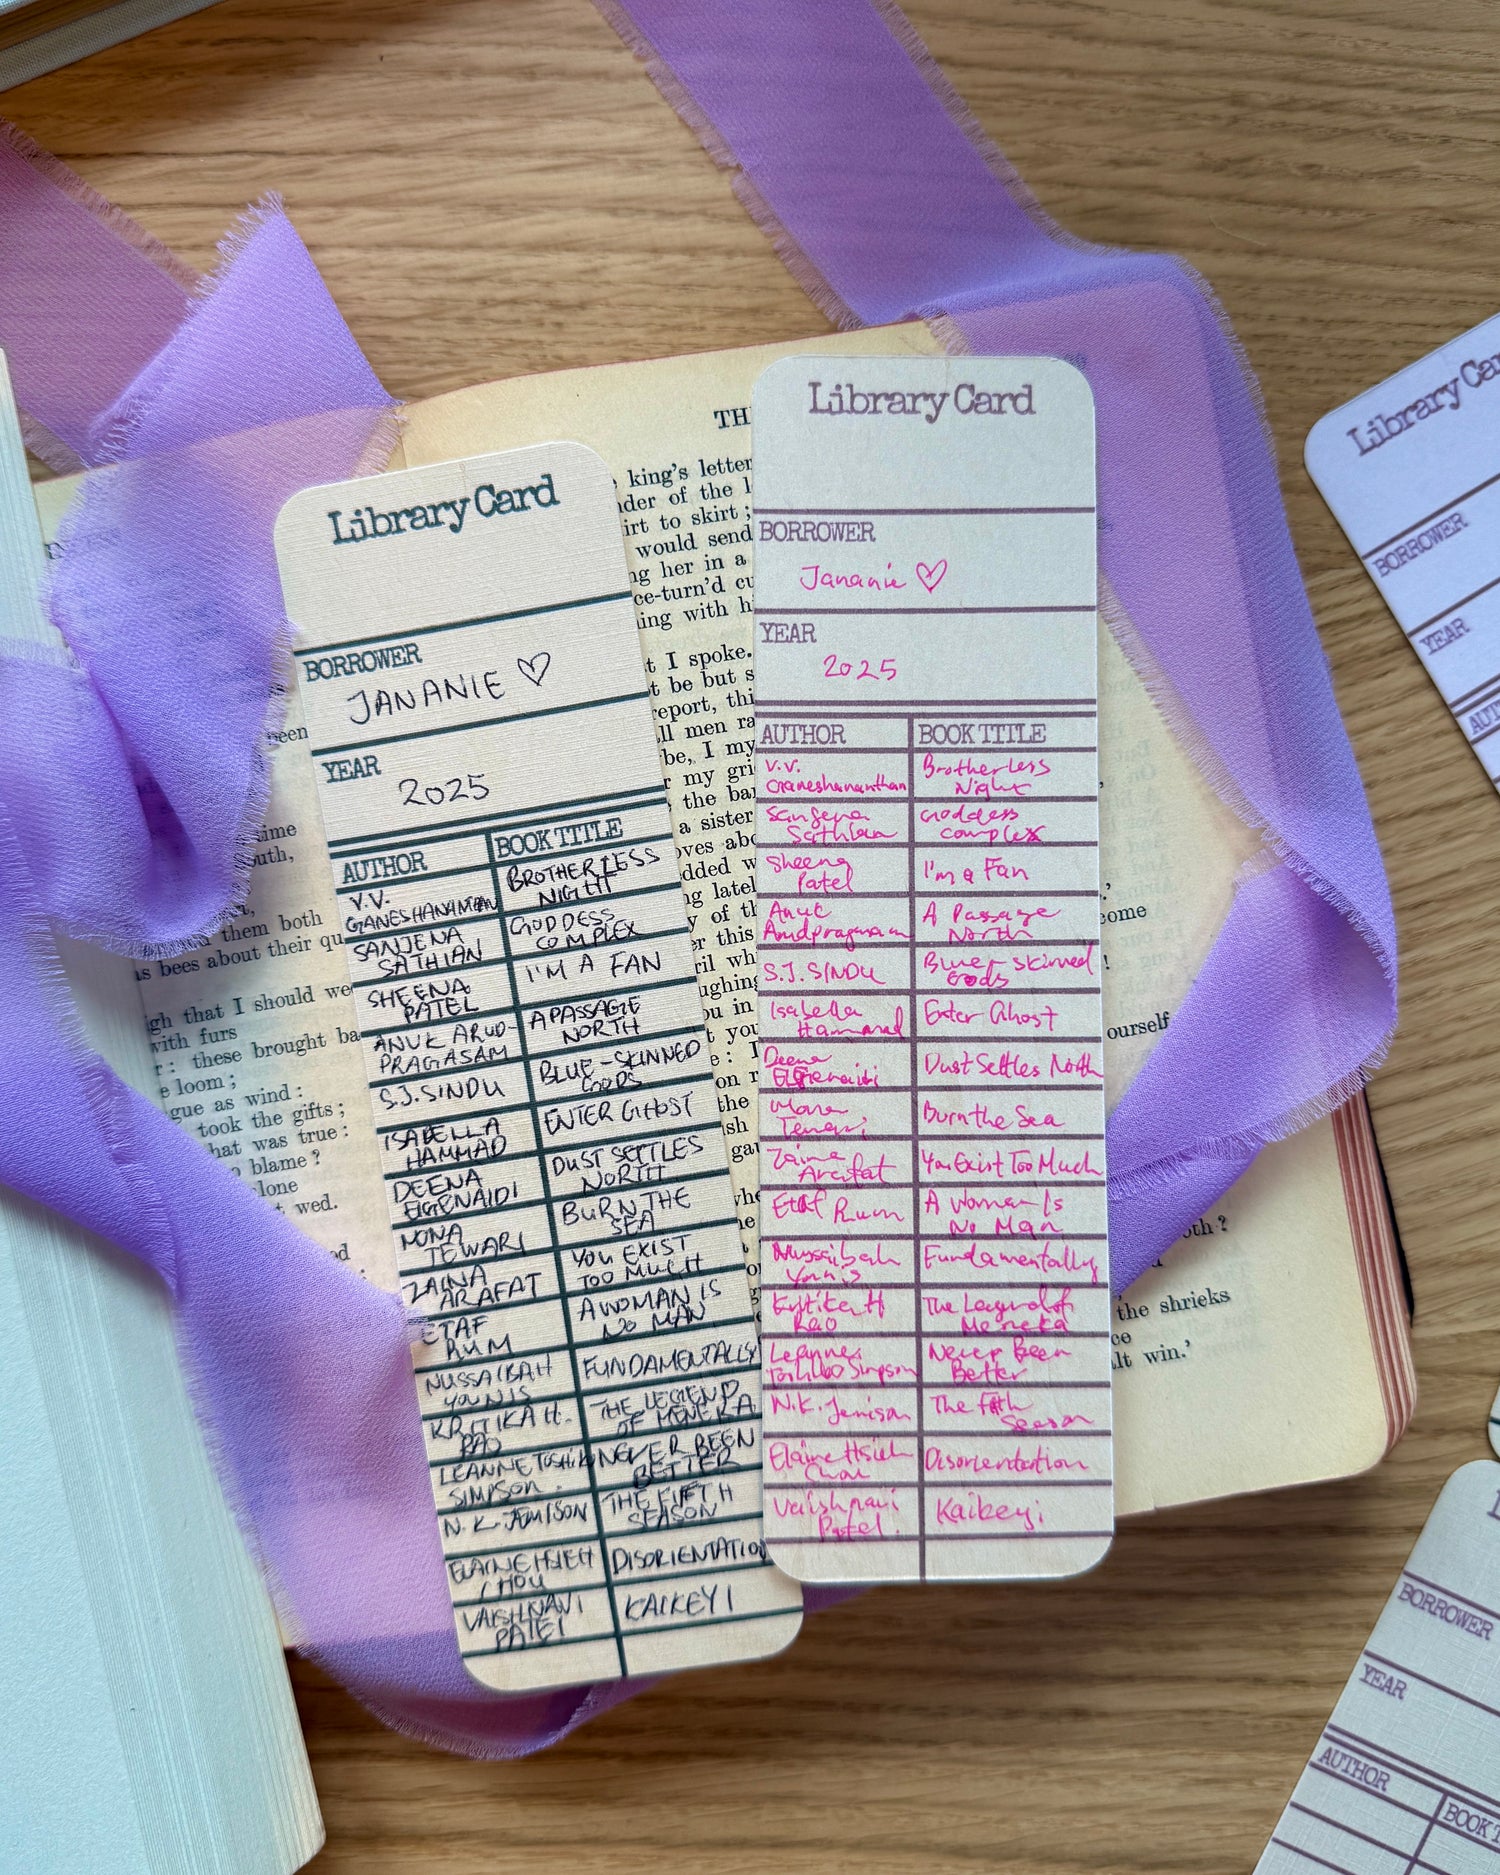 Library Card
BORROWER
JANANIE ♡
YEAR
2025
AUTHOR BOOK TITLE
V.V. GANESHANANTHAN BROTHERLESS NIGHT
SANJENA SATHIAN GODDESS COMPLEX
SHEENA PATEL I'M A FAN
ANUK ARUD-PRAGASAM A PASSAGE NORTH
S.J. SINDU BLUE-SKINNED GODS
ISABELLA HAMMAD ENTER GHOST
DEENA ELGENAIDI DUST SETTLES NORTH
MONA TEWARI BURN THE SEA
ZAINA ARAFAT YOU EXIST TOO MUCH
ETAF RUM A WOMAN IS NO MAN
NUSSAIBAH YOUNIS FUNDAMENTALLY
KRITIKA H. RAO THE LEGEND OF MENEKA
LEANNE TOSHIKO SIMPSON NEVER BEEN BETTER
N.K. JEMISON THE FIFTH SEASON
ELAINE HSIEH CHOU DISORIENTATION
VAISHNAVI PATEL KAIKEYI
Library Card
BORROWER
Jananie ♡
YEAR
2025
AUTHOR BOOK TITLE
V.V. Ganeshananthan Brotherless Night
Sanjena Sathian Goddess Complex
Sheena Patel I'm a Fan
Anuk A Passage North
S.J. SINDU Blue-skinned Gods
Isabella Hammad Enter Ghost
Deena Dust Settles North
Mona Tewari Burn the Sea
Zaina Arafat You Exist Too Much
Etaf Rum A Woman Is No Man
Nussaibah Younis Fundamentally
Kritika H Rao The Legend of Meneka
Leanne Toshiko Simpson Never Been Better
N.K. Jemison The Fifth Season
Elaine Hsieh Chou Disorientation
Vaishnavi Patel. Kaikeyi
TH
king's letter
of the
irt to skirt ;
would send
her in a
ce-turn'd
ing with
t I spoke.
be but
report,
ll men
be, I my
my
the
a sister
time
them both
as bees about their
that I should
with furs
these brought
loom ;
gue as wind :
took the gifts ;
hat was true :
blame ?
wed.
come
ourself
the shrieks
lt win.'
Library
BORROWER
YEAR
BORROWER
YEAR
AUTHOR
BOOK